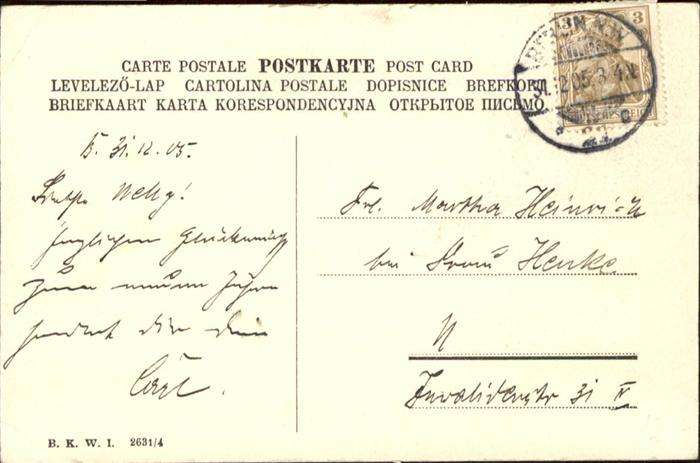 CARTE POSTALE POSTKARTE POST CARD
LEVELEZŐ-LAP CARTOLINA POSTALE DOPISNICE BREFKORT
BRIEFKAART KARTA KORESPONDENCYJNA ОТКРЫТОЕ ПИСЬМО
3 3
BERLIN N.W.
31.12.05.3-4N.
B. 31.12.05.
Liebste Nelly!
herzlichen Glückwunsch
zum neuen Jahre
sendet dir dein
Carl.
Frl. Martha Heinrich
bei Frau Henke
N
Invalidenstr 31 V
B. K. W. I. 2631/4